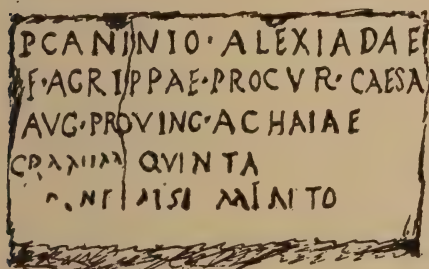 P CANINIO · ALEXIADAE
F · AGRIPPAE · PROCVR · CAESA
AVG · PROVINC · ACHAIAE
QVINTA